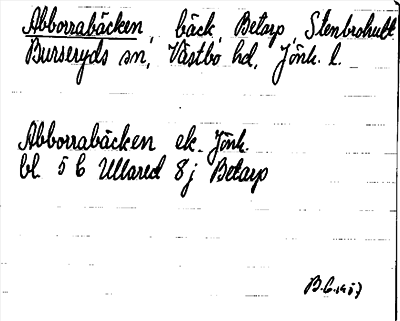 Abborrabäcken, bäck, Betarp, Stenbrohult
Burseryds sn, Västbo hd, Jönk. l.
Abborrabäcken ek. Jönk.
bl. 5 C Ullared 8j Betarp